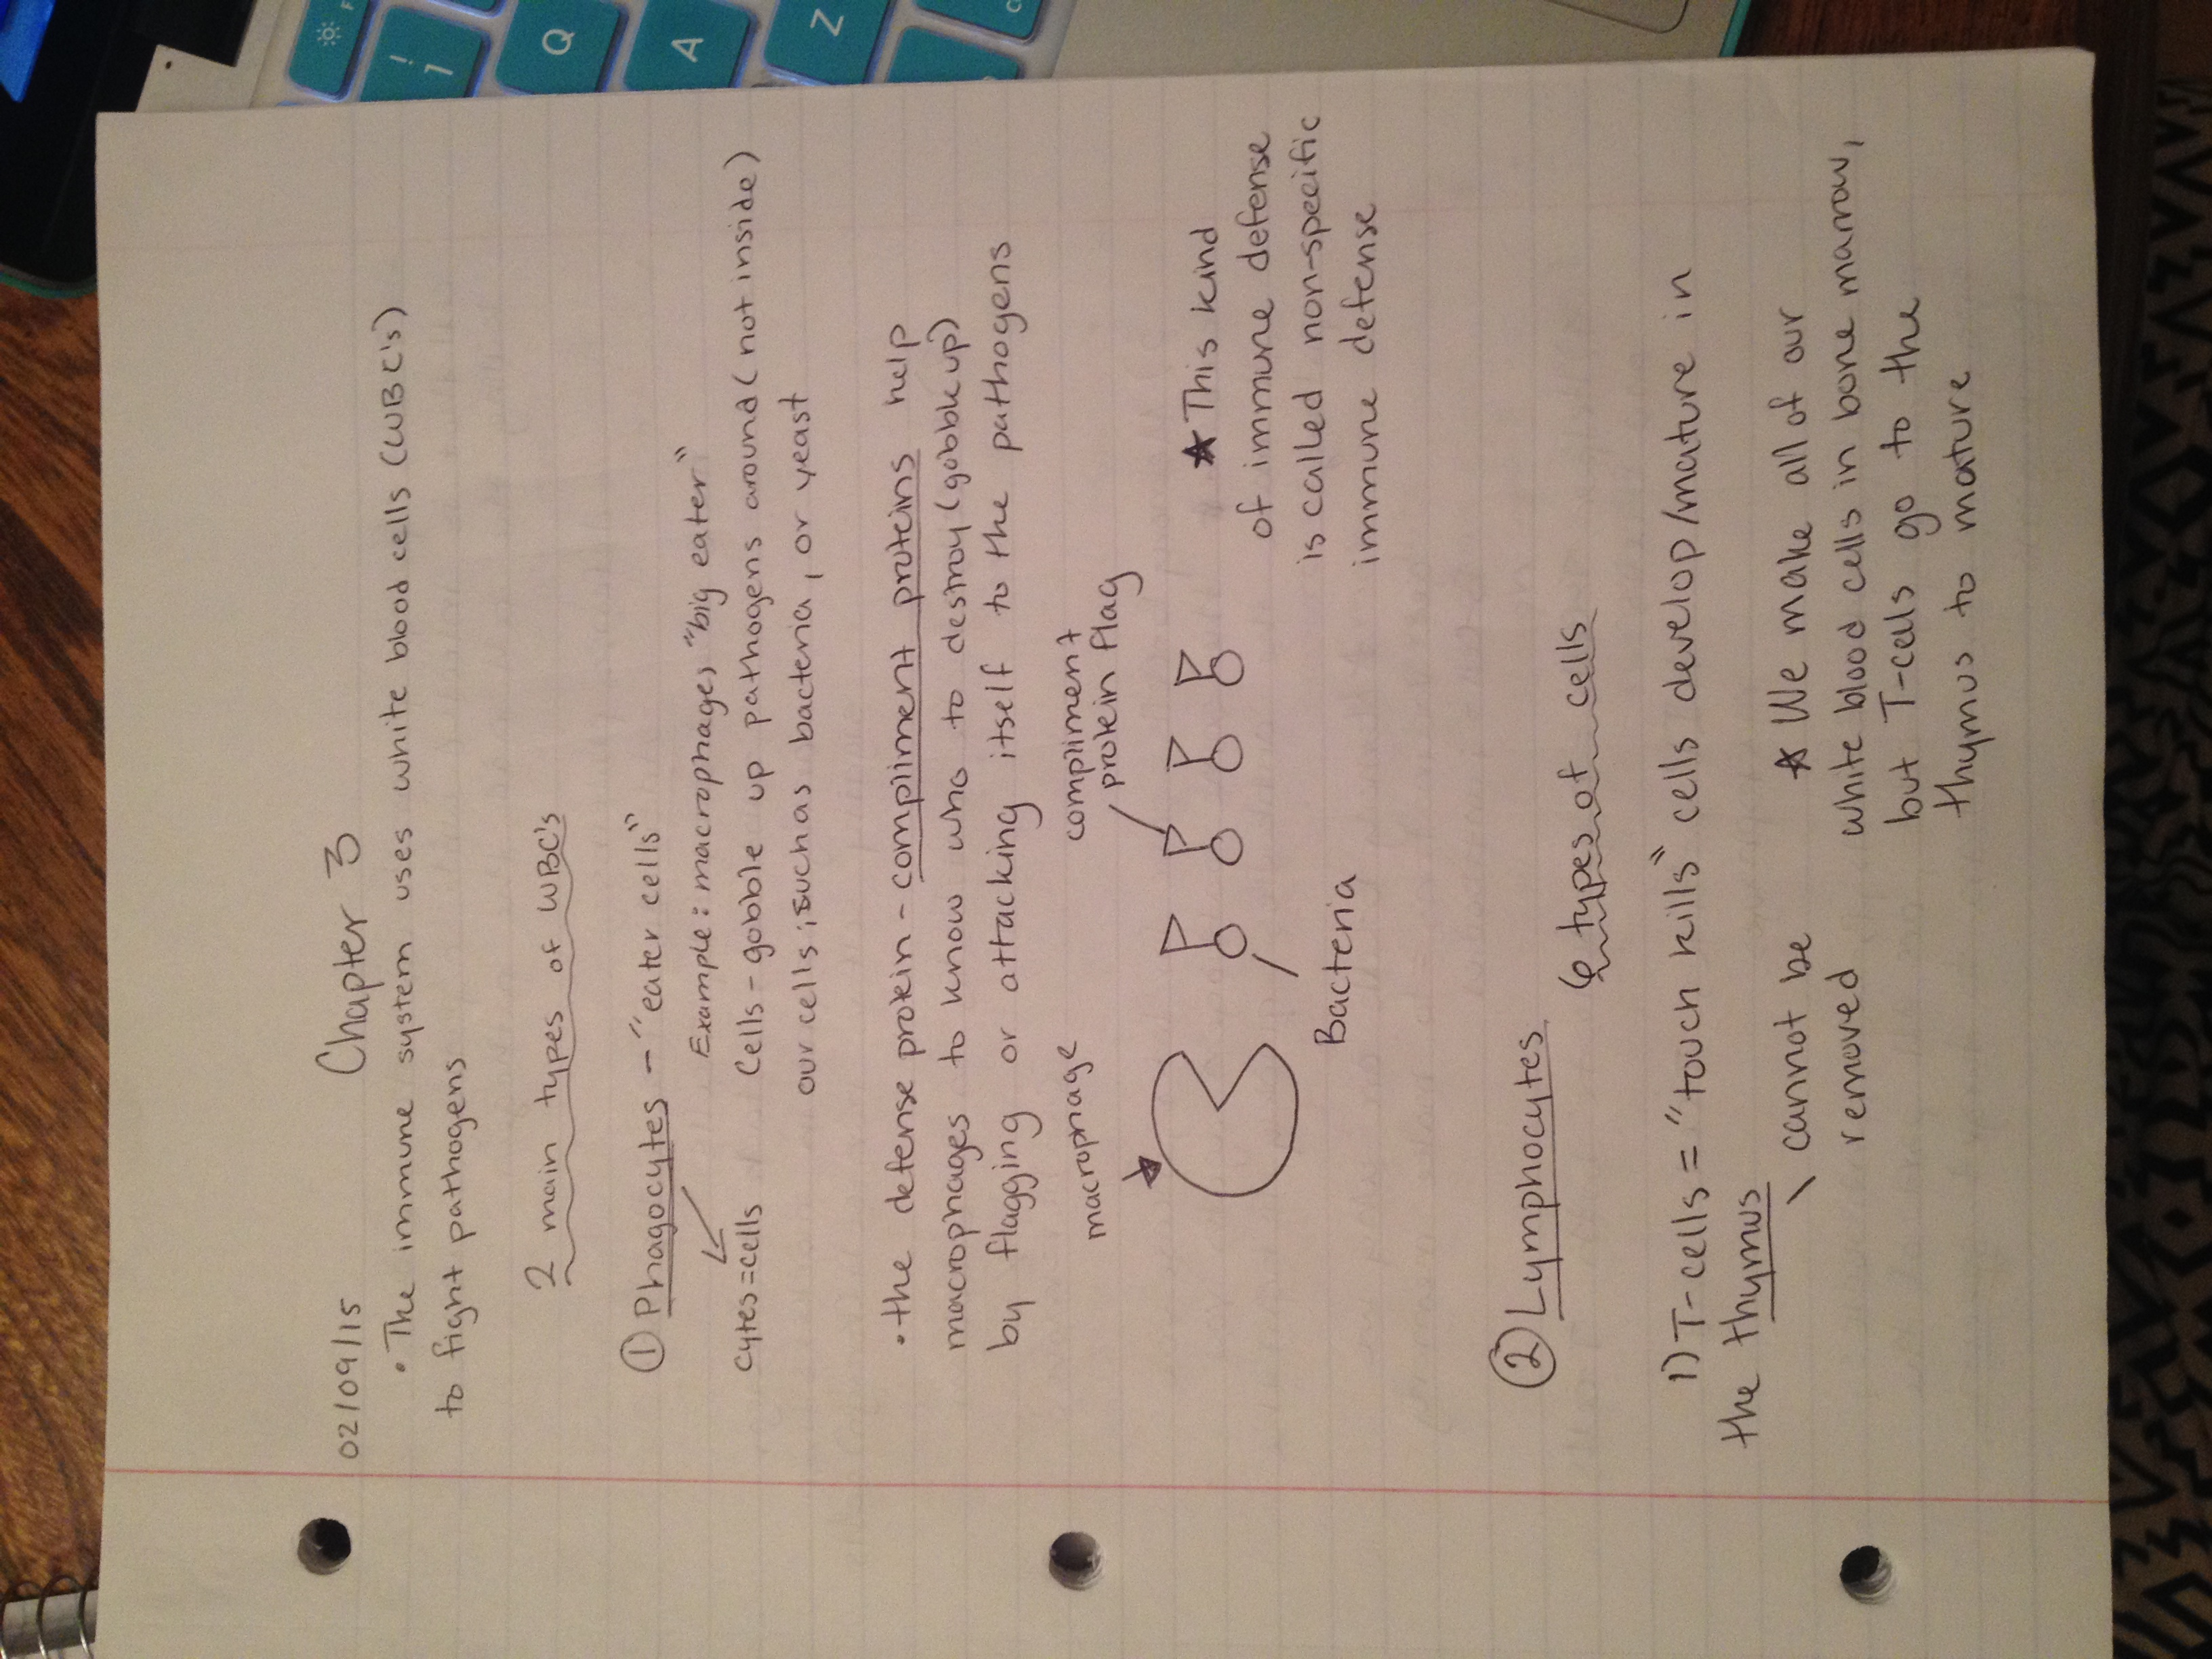 02/09/15
Chapter 3
• The immune system uses white blood cells (WBC's)
to fight pathogens
2 main types of WBC's
① Phagocytes - "eater cells"
Example: macrophages "big eater"
cytes=cells
Cells - gobble up pathogens around (not inside)
our cells; such as bacteria, or yeast
• the defense protein - compliment proteins help
macrophages to know who to destroy (gobble up)
by flagging or attacking itself to the pathogens
macrophage
compliment
protein flag
Bacteria
★ This kind
of immune defense
is called non-specific
immune defense
② Lymphocytes
6 types of cells
1) T-cells = "touch kills" cells develop/mature in
the thymus
cannot be
removed
★ We make all of our
white blood cells in bone marrow,
but T-cells go to the
thymus to mature
! 1
Q
A
Z